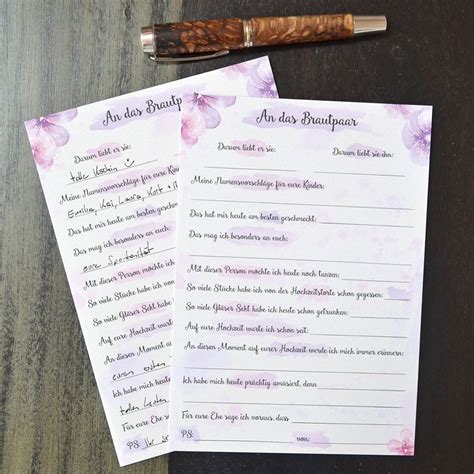 An das Brautpaar
Darum liebt er sie:
toller Kochin
Meine Namensvorschläge für eure Kinder:
Emilia, Kai, Laura, Kurt
Das hat mir heute am besten
Das mag ich besonders an euch:
eure Spontanität
Mit dieser Person möchte ich
So viele Stücke habe ich von
So viele Gläser Sekt habe ich
Auf eure Hochzeit warte ich
An diesen Moment auf
euren ersten
Ich habe mich heute
tollen Leuten
Für eure Ehe sage ich
PS: Ihr
An das Brautpaar
Darum liebt er sie: Darum liebt sie ihn:
Meine Namensvorschläge für eure Kinder:
Das hat mir heute am besten geschmeckt:
Das mag ich besonders an euch:
Mit dieser Person möchte ich heute noch tanzen:
So viele Stücke habe ich von der Hochzeitstorte schon gegessen:
So viele Gläser Sekt habe ich heute schon getrunken:
Auf eure Hochzeit warte ich schon seit:
An diesen Moment auf eurer Hochzeit werde ich mich immer erinnern:
Ich habe mich heute prächtig amüsiert, denn
Für eure Ehe sage ich voraus, dass
PS: von: